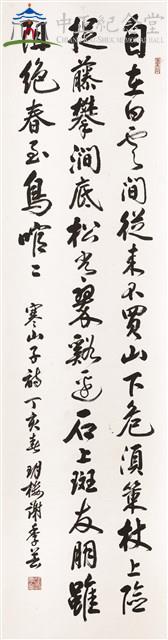 中正紀念堂
CHIANG KAI-SHEK MEMORIAL HALL
自在白雲間從來不買山下危須策杖上險
捉藤攀澗底松常翠谿邊石上斑友朋雖
阻絕春至鳥喧〻
寒山子詩丁亥春謝季芸